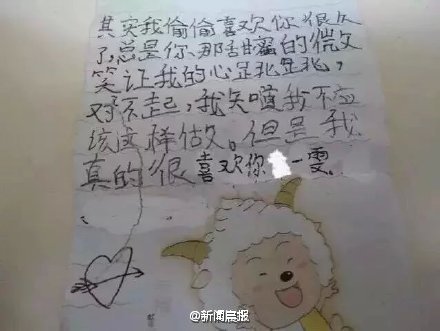 其实我偷偷喜欢你很久
了,总是你那甜蜜的微
笑让我的心跳跳，
对不起，我知道我不应
该这样做。但是我
真的很喜欢你一雯
@新闻晨报